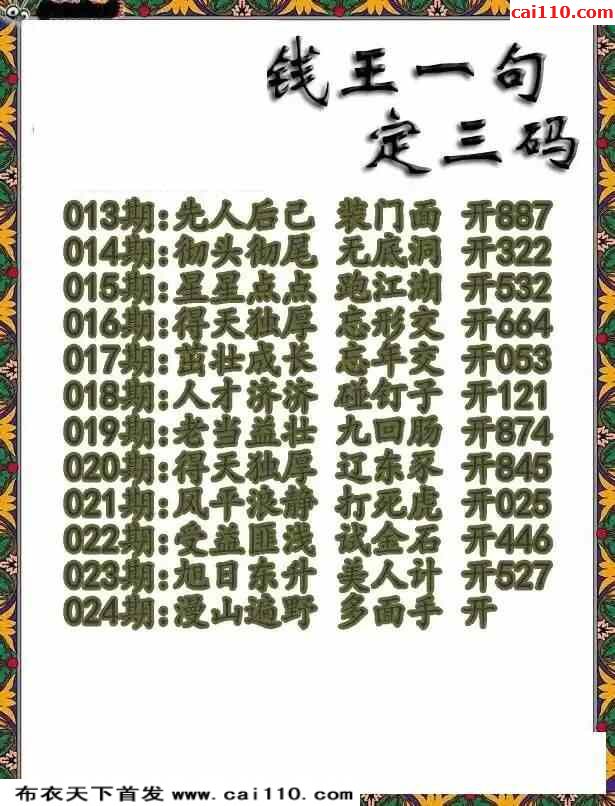 cai110.com
钱王一句
定三码
013期:先人后己 装门面 开887
014期:彻头彻尾 无底洞 开322
015期:星星点点 跑江湖 开532
016期:得天独厚 忘形交 开664
017期:茁壮成长 忘年交 开053
018期:人才济济 碰钉子 开121
019期:老当益壮 九回肠 开874
020期:得天独厚 辽东豕 开845
021期:风平浪静 打死虎 开025
022期:受益匪浅 试金石 开446
023期:旭日东升 美人计 开527
024期:漫山遍野 多面手 开
布衣天下首发 www.cai110.com